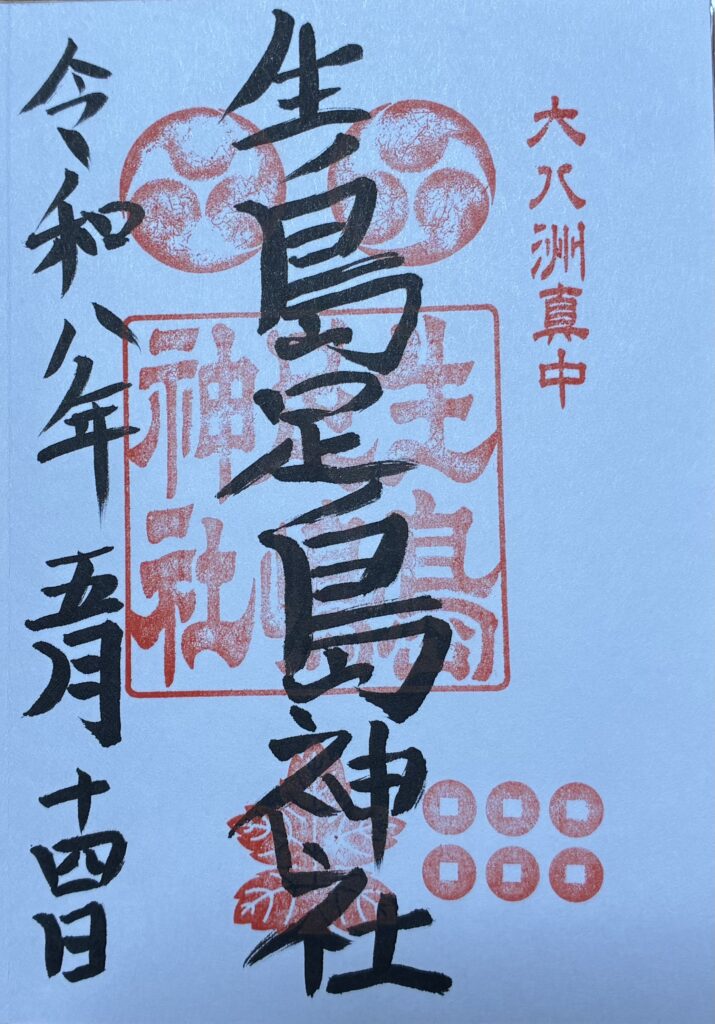 大八洲真中
生島足島神社
生島足島神社
令和八年五月十四日